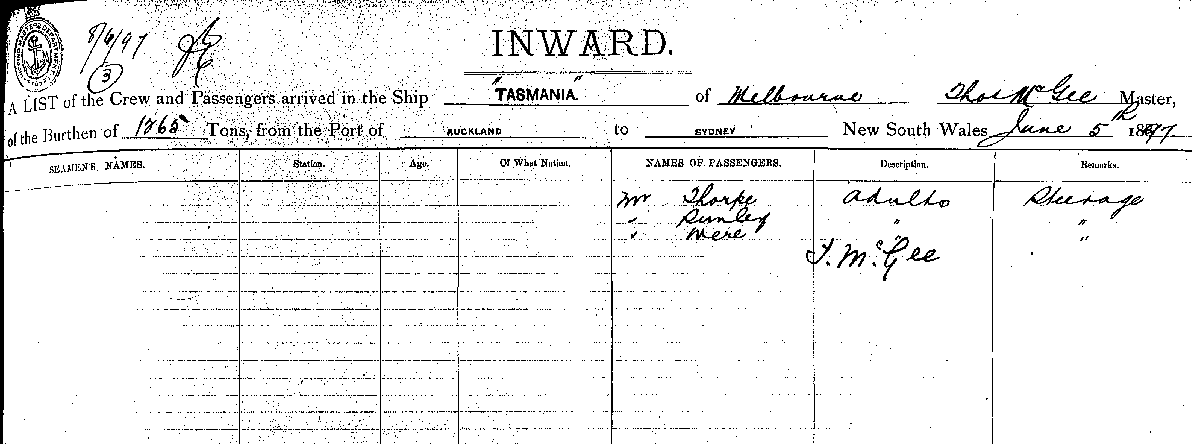 8/6/97
3
INWARD.
A LIST of the Crew and Passengers arrived in the Ship "TASMANIA" of Melbourne Thos McGee Master,
of the Burthen of 1865 Tons, from the Port of AUCKLAND to SYDNEY New South Wales June 5th 1897
SEAMEN'S NAMES. Station. Age. Of What Nation. NAMES OF PASSENGERS. Description. Remarks.
Mr Thorpe adults Steerage
" " "
" Mere "
T. McGee